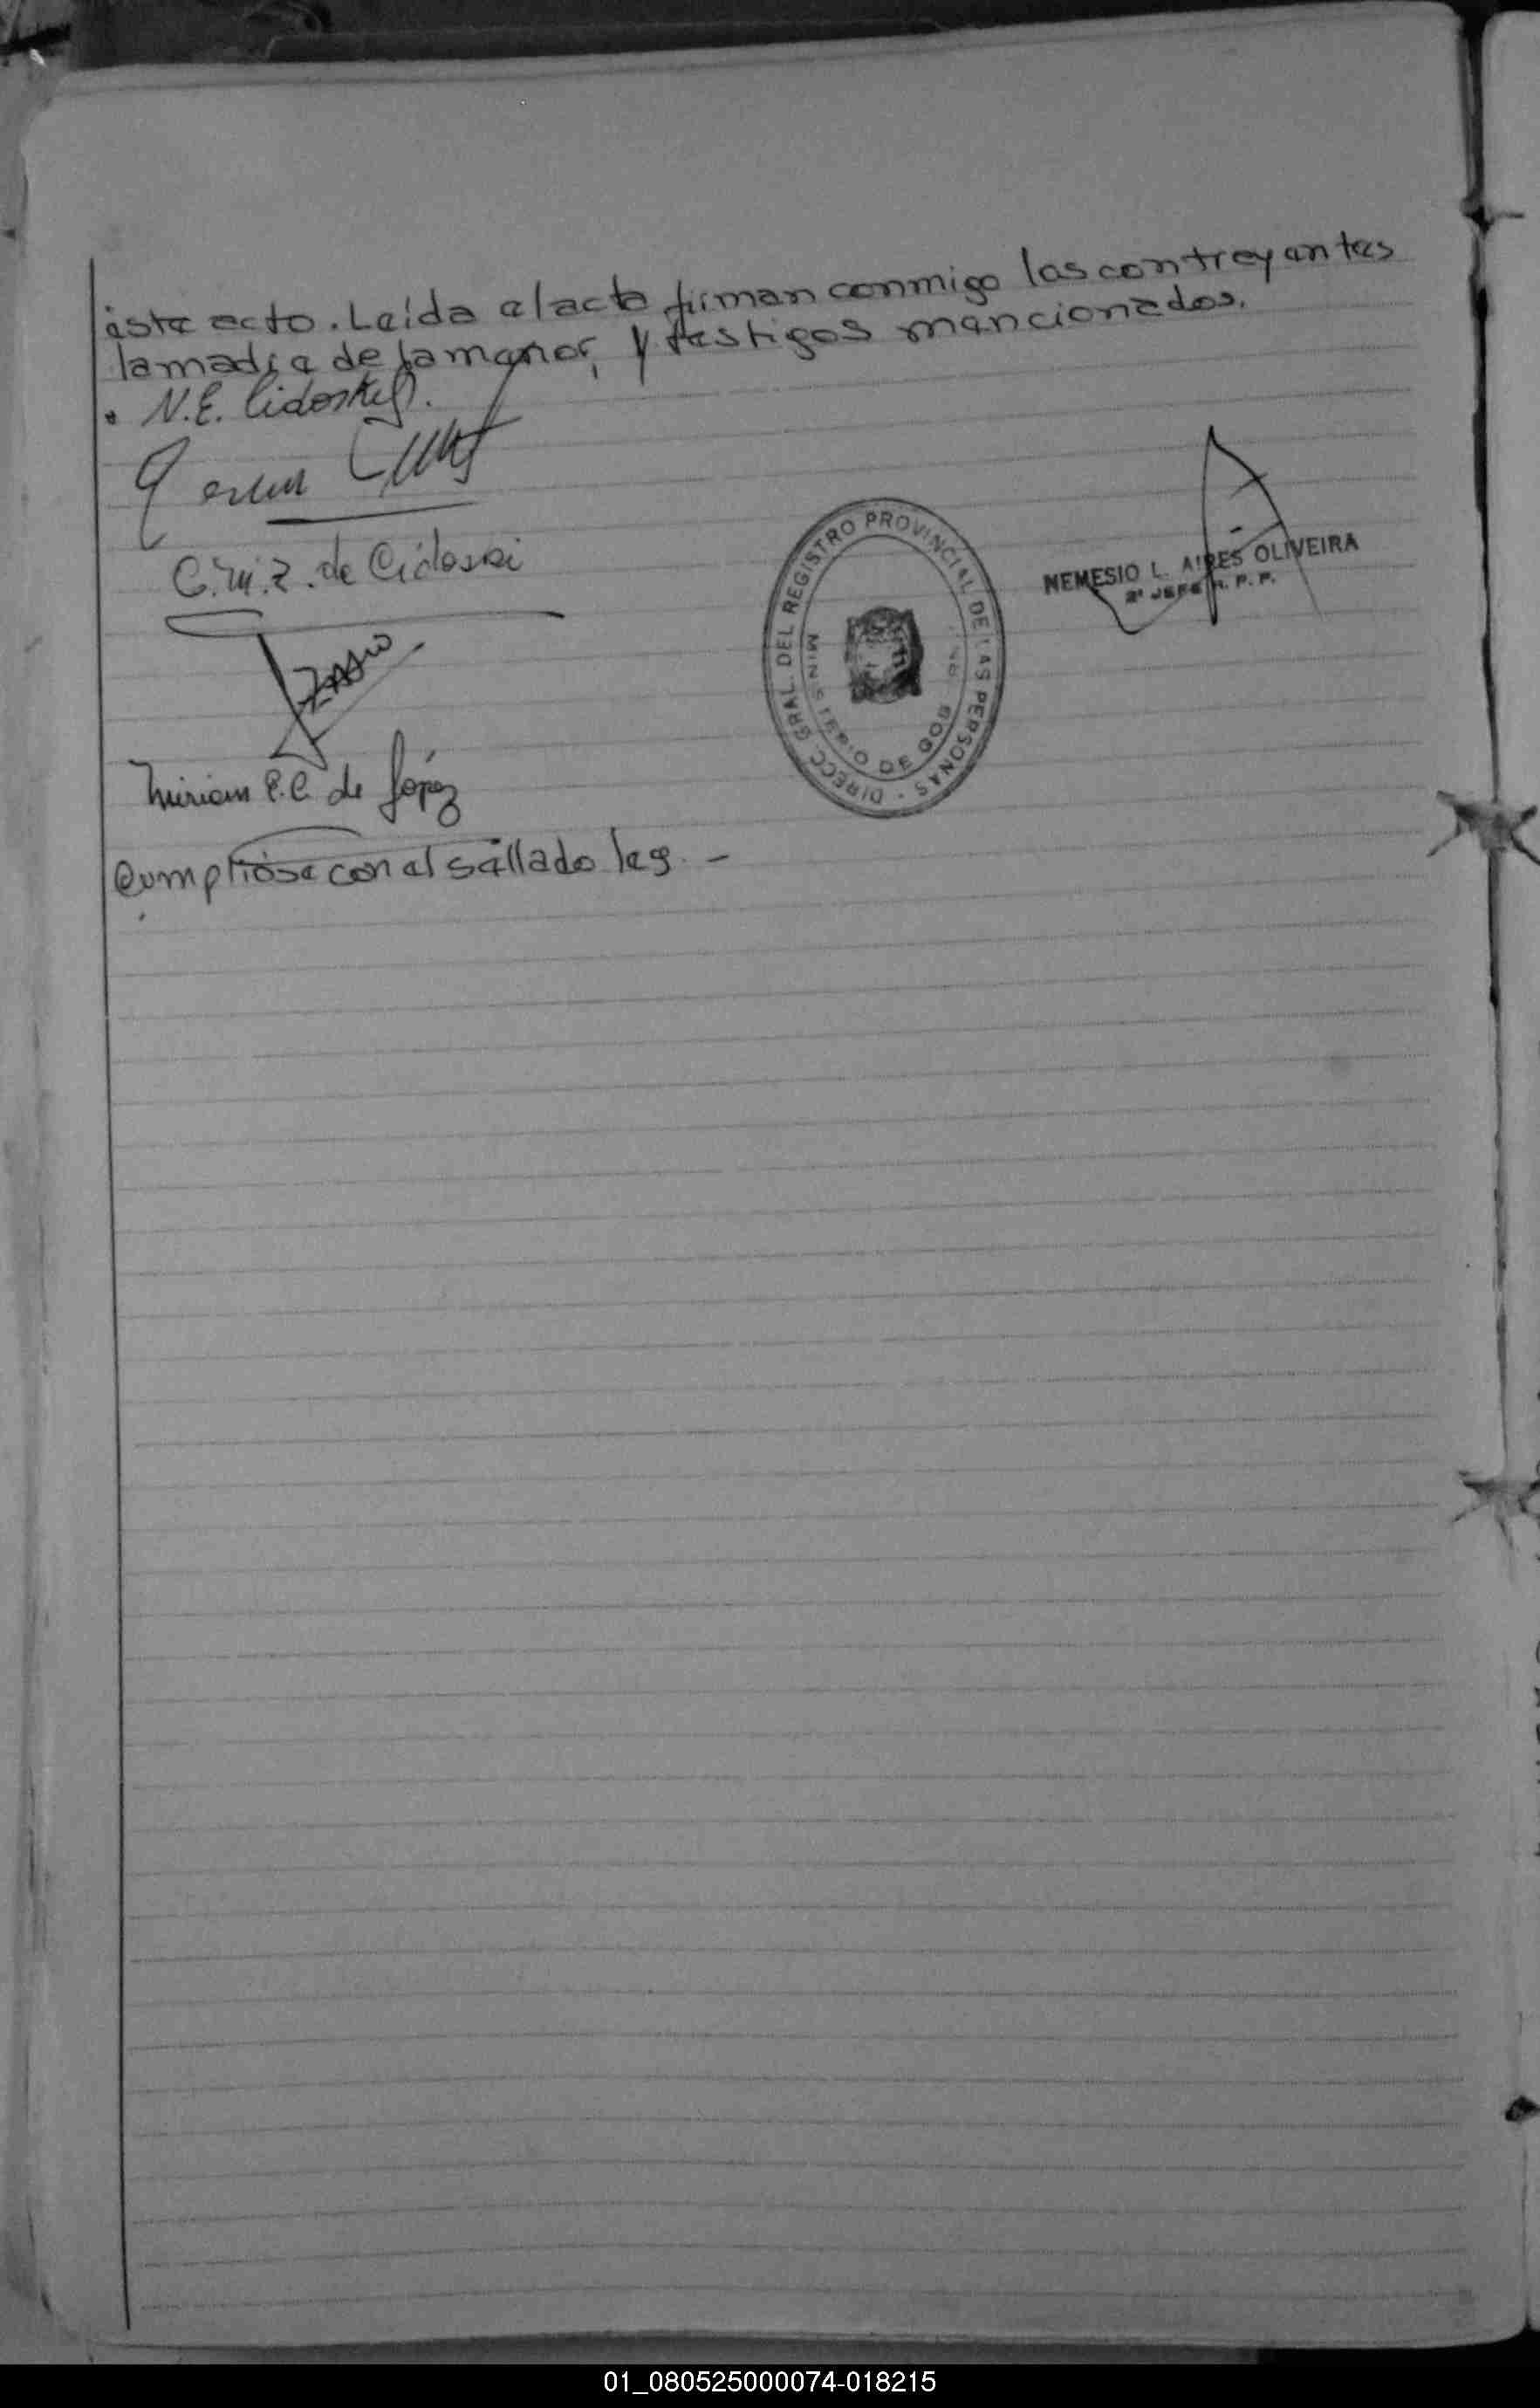 este acto. Leída el acta firman conmigo los contreyentes
la madre de la menor, y testigos mencionados.
N.E. Cidoski
C. M. Z. de Cidoski
Miriam E.C. de López
Cumplióse con el sellado leg. -
DIRECC. GRAL. DEL REGISTRO PROVINCIAL DE LAS PERSONAS -
MINISTERIO DE GOB
NEMESIO L. AIRES OLIVEIRA
2º JEFE R. P. P.
01_080525000074-018215